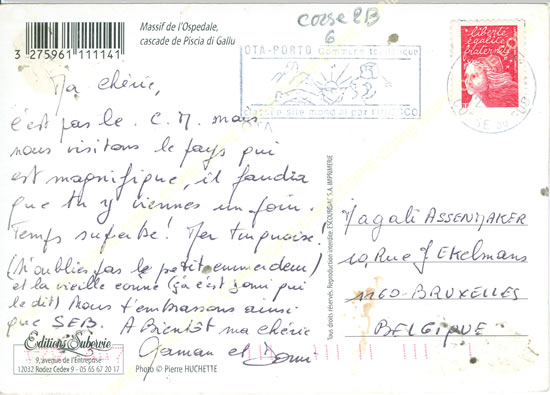 Massif de l'Ospedale,
cascade de Piscia di Gallu
3 275961 111141
corse 2B
6
OTA-PORTO Commune touristique
classée site mondial par l'UNESCO
liberté
égalité
fraternité
Ma chérie,
c'est pas le C.M. mais
nous visitons le pays qui
est magnifique, il faudra
que tu y viennes un jour.
Temps superbe! Mer turquoise!
(N'oublies pas le petit emmerdeur)
et la vieille conne (ça c'est Domi qui
le dit) Nous t'embrassons ainsi
que SEB. A Bientôt ma chérie
Gaman et Domi
Magali ASSENMAKER
Rue J EKelmans
1160-BRUXELLES
BELGIQUE
Editions Subervie
9, avenue de l'Entreprise
12032 Rodez Cedex 9 - 05 65 67 20 17
Photo © Pierre HUCHETTE
Tous droits réservés. Reproduction interdite.